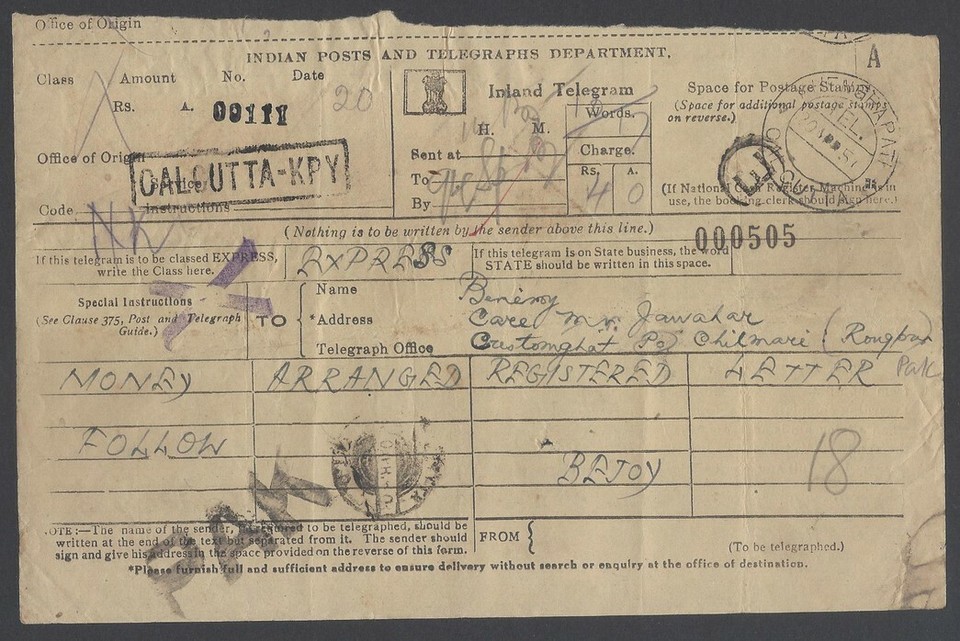 Office of Origin
A
INDIAN POSTS AND TELEGRAPHS DEPARTMENT.
Class Amount No. Date
Rs. A. 00111 20
Inland Telegram
H. M. Words.
Sent at Charge.
To Rs. A.
By 4 0
Space for Postage Stamps
(Space for additional postage stamps
on reverse.)
(If National Cash Register Machine is in
use, the booking clerk should sign here.)
Office of Origin
CALCUTTA-KPY
Service
Instructions
Code
(Nothing is to be written by the sender above this line.)
000505
If this telegram is to be classed EXPRESS,
write the Class here.
EXPRESS
If this telegram is on State business, the word
STATE should be written in this space.
Special Instructions
(See Clause 375, Post and Telegraph
Guide.)
TO
Name
*Address Care Mr. Jawahar
Telegraph Office Customghat Po) Chilmari (Rongpur
Pak
MONEY ARRANGED REGISTERED LETTER
FOLLOW
BEJOY
18
NOTE:—The name of the sender, if required to be telegraphed, should be
written at the end of the text but separated from it. The sender should
sign and give his address in the space provided on the reverse of this form.
FROM
(To be telegraphed.)
*Please furnish full and sufficient address to ensure delivery without search or enquiry at the office of destination.